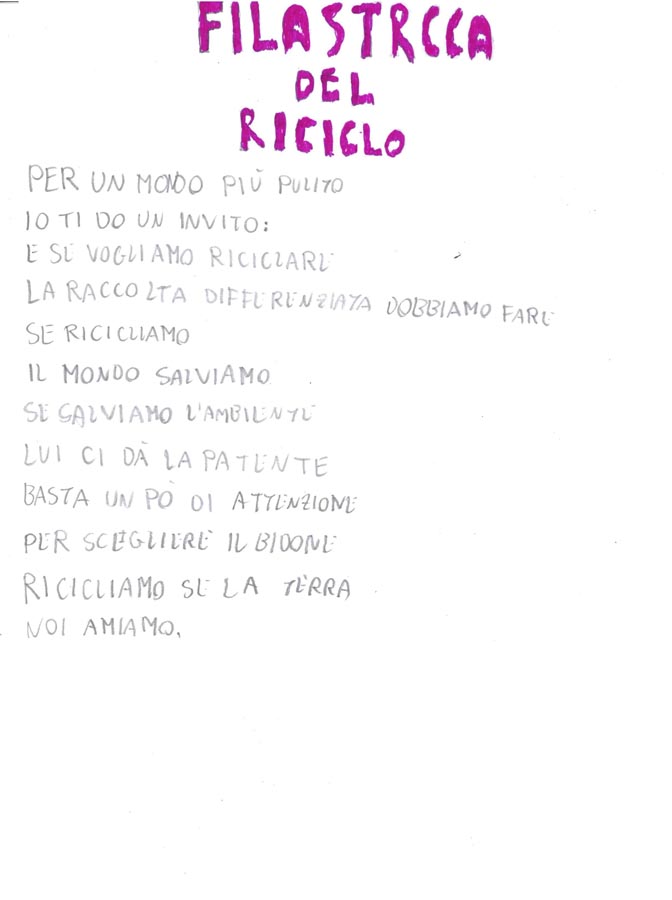 FILASTRCCA
DEL
RICICLO
PER UN MONDO PIÙ PULITO
IO TI DO UN INVITO:
E SE VOGLIAMO RICICLARE
LA RACCOLTA DIFFERENZIATA DOBBIAMO FARE
SE RICICLIAMO
IL MONDO SALVIAMO
SE SALVIAMO L'AMBIENTE
LUI CI DÀ LA PATENTE
BASTA UN PÒ DI ATTENZIONE
PER SCEGLIERE IL BIDONE
RICICLIAMO SE LA TERRA
NOI AMIAMO.